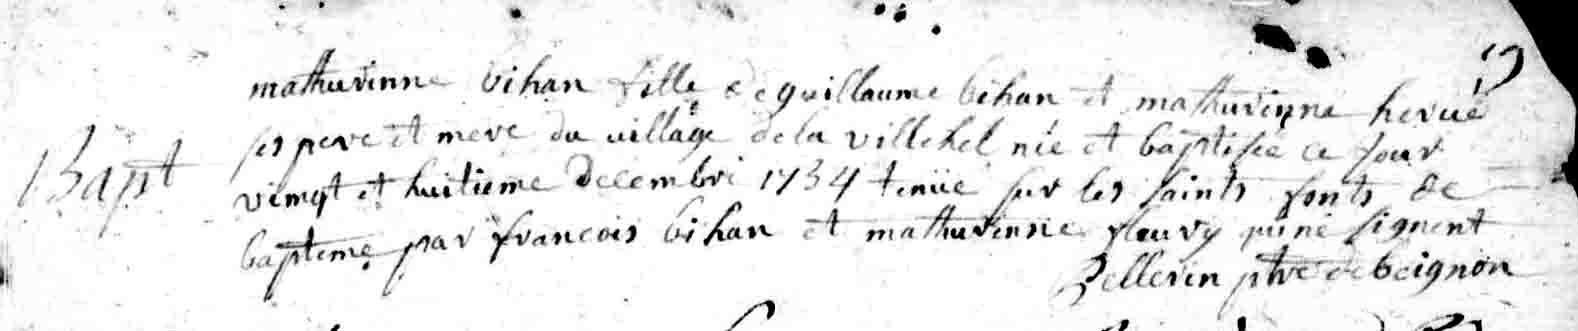 mathurinne bihan fille de guillaume bihan et mathurinne hervé
ses pere et mere du village de la villehel née et baptisée ce jour
Bapt
vingt et huitieme decembre 1734 tenüe sur les saints fonts de
bapteme par francois bihan et mathurinne fleury qui ne signent
Pellerin ptre de beignon